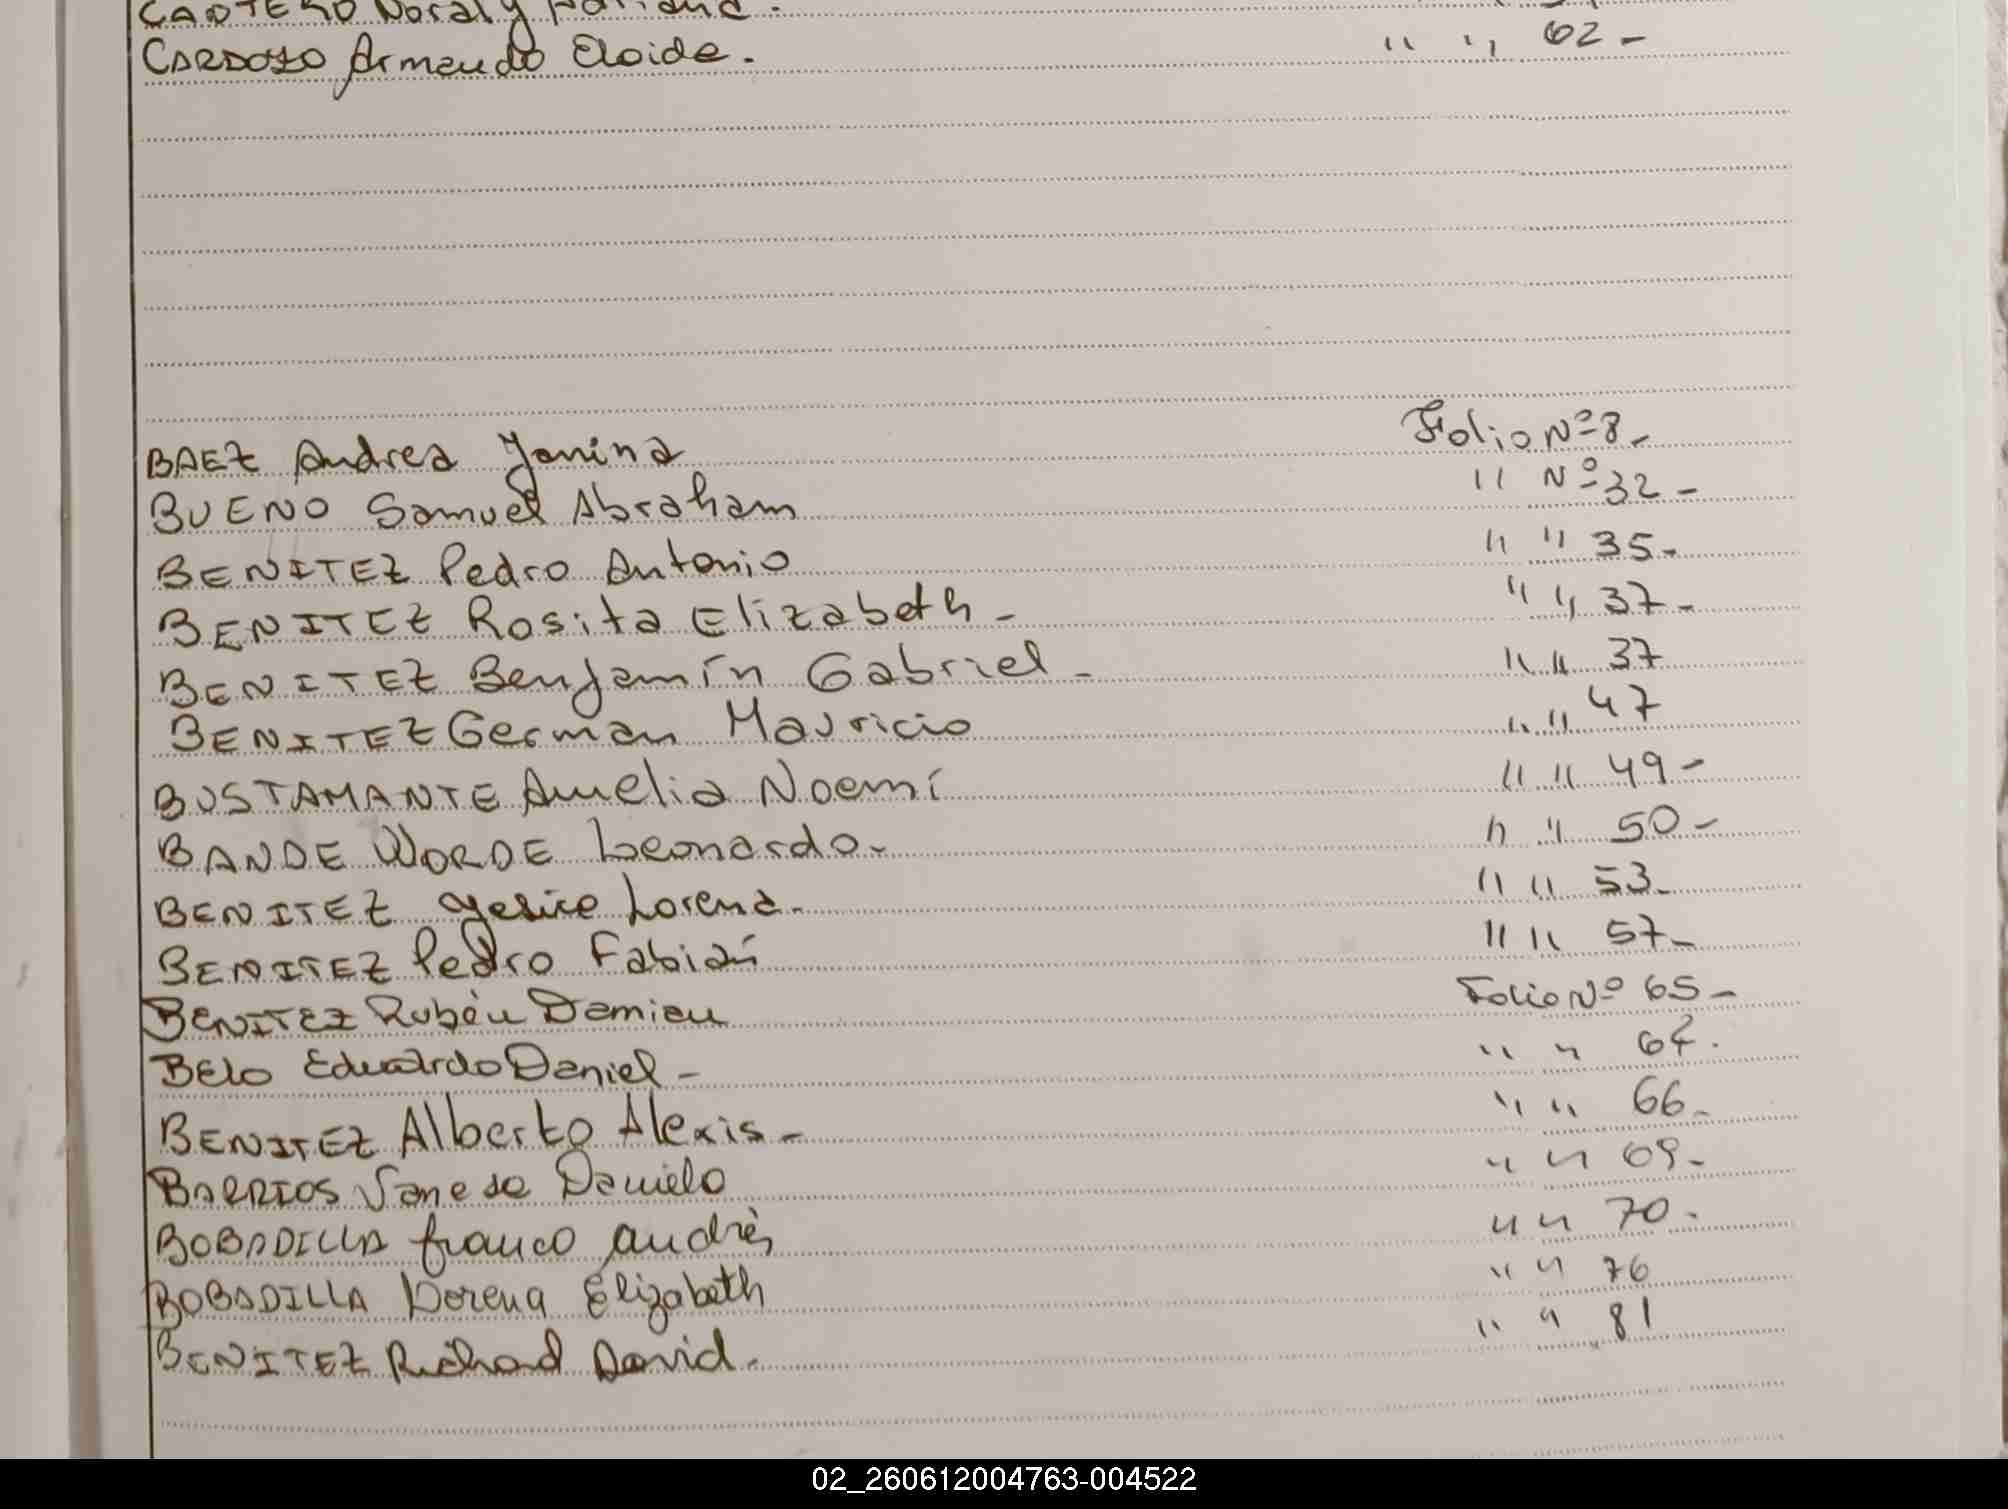 CARDOZO Armando Eloide. " " 62-
BAEZ Andrea Yanina Folio Nº 8-
BUENO Samuel Abraham " Nº 32-
BENITEZ Pedro Antonio " " 35-
BENITEZ Rosita Elizabeth- " " 37-
BENITEZ Benjamín Gabriel- " " 37
BENITEZ German Mauricio " " 47
BUSTAMANTE Amelia Noemí " " 49-
BANDE WORDE Leonardo- " " 50-
BENITEZ Yesica Lorena- " " 53-
BENITEZ Pedro Fabián " " 57-
BENITEZ Rubén Damian Folio Nº 65-
BELO Eduardo Daniel- " "
BENITEZ Alberto Alexis- " " 66-
BARRIOS Vanesa Daniela " " 69-
BOBADILLA Franco Andrés " " 70-
BOBADILLA Lorena Elizabeth " " 76
BENITEZ Richard David. " " 81
02_260612004763-004522